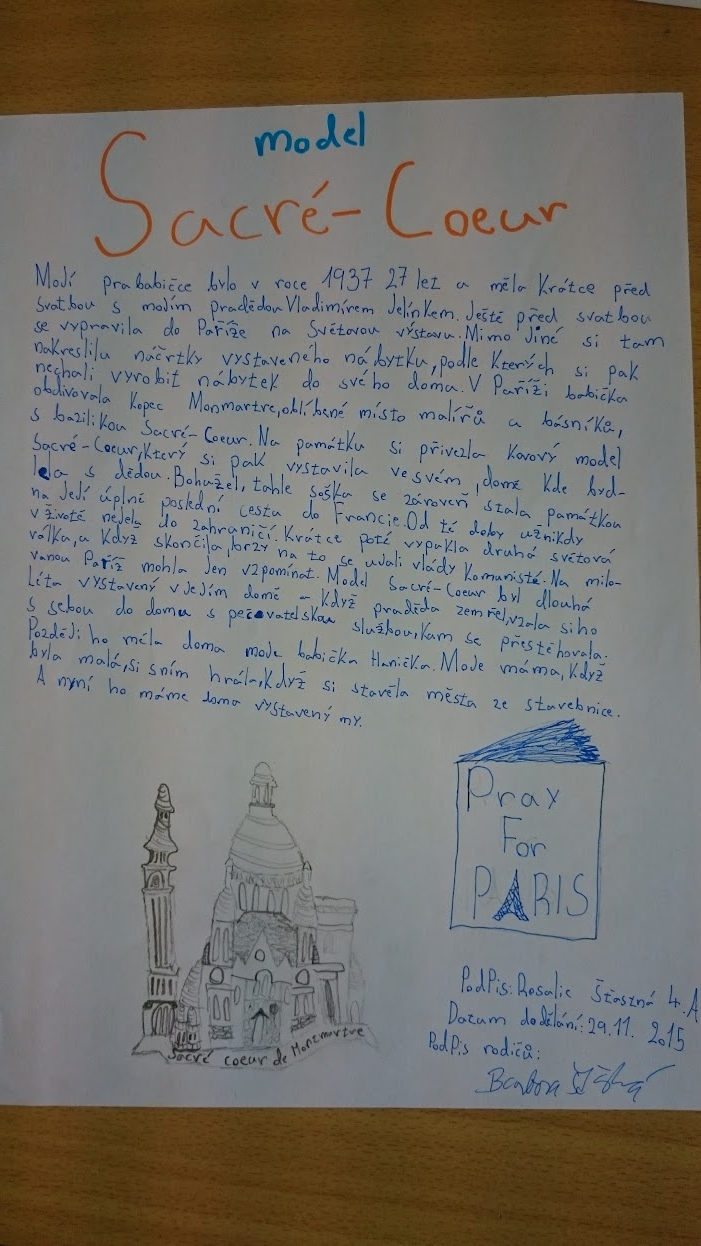 model
Sacré-Coeur
Mojí prababičce bylo v roce 1937 27 let a měla krátce před
svatbou s mojím pradědou Vladimírem Jelínkem. Ještě před svatbou
se vypravila do Paříže na Světovou výstavu. Mimo jiné si tam
nakreslila náčrtky vystaveného nábytku, podle kterých si pak
nechali vyrobit nábytek do svého domu. V Paříži babička
obdivovala kopec Monmartre, oblíbené místo malířů a básníků,
s bazilikou Sacré-Coeur. Na památku si přivezla kovový model
Sacré-Coeur, který si pak vystavila ve svém domě, kde byd-
lela s dědou. Bohužel, tahle soška se zároveň stala památkou
na její úplně poslední cestu do Francie. Od té doby už nikdy
v životě nejela do zahraničí. Krátce poté vypukla druhá světová
válka, a když skončila, brzy na to se ujali vlády komunisté. Na milo-
vanou Paříž mohla jen vzpomínat. Model Sacré-Coeur byl dlouhá
léta vystavený v jejím domě - když praděda zemřel, vzala si ho
s sebou do domu s pečovatelskou službou, kam se přestěhovala.
Později ho měla doma moje babička Hanička. Moje máma, když
byla malá, si s ním hrála, když si stavěla města ze stavebnice.
A nyní ho máme doma vystavený my.
Pray
For
PARIS
Sacré coeur de Montmartre
Podpis: Rosalie Šťastná 4.A
Datum dodělání: 29.11. 2015
Podpis rodičů:
Barbora Šťastná